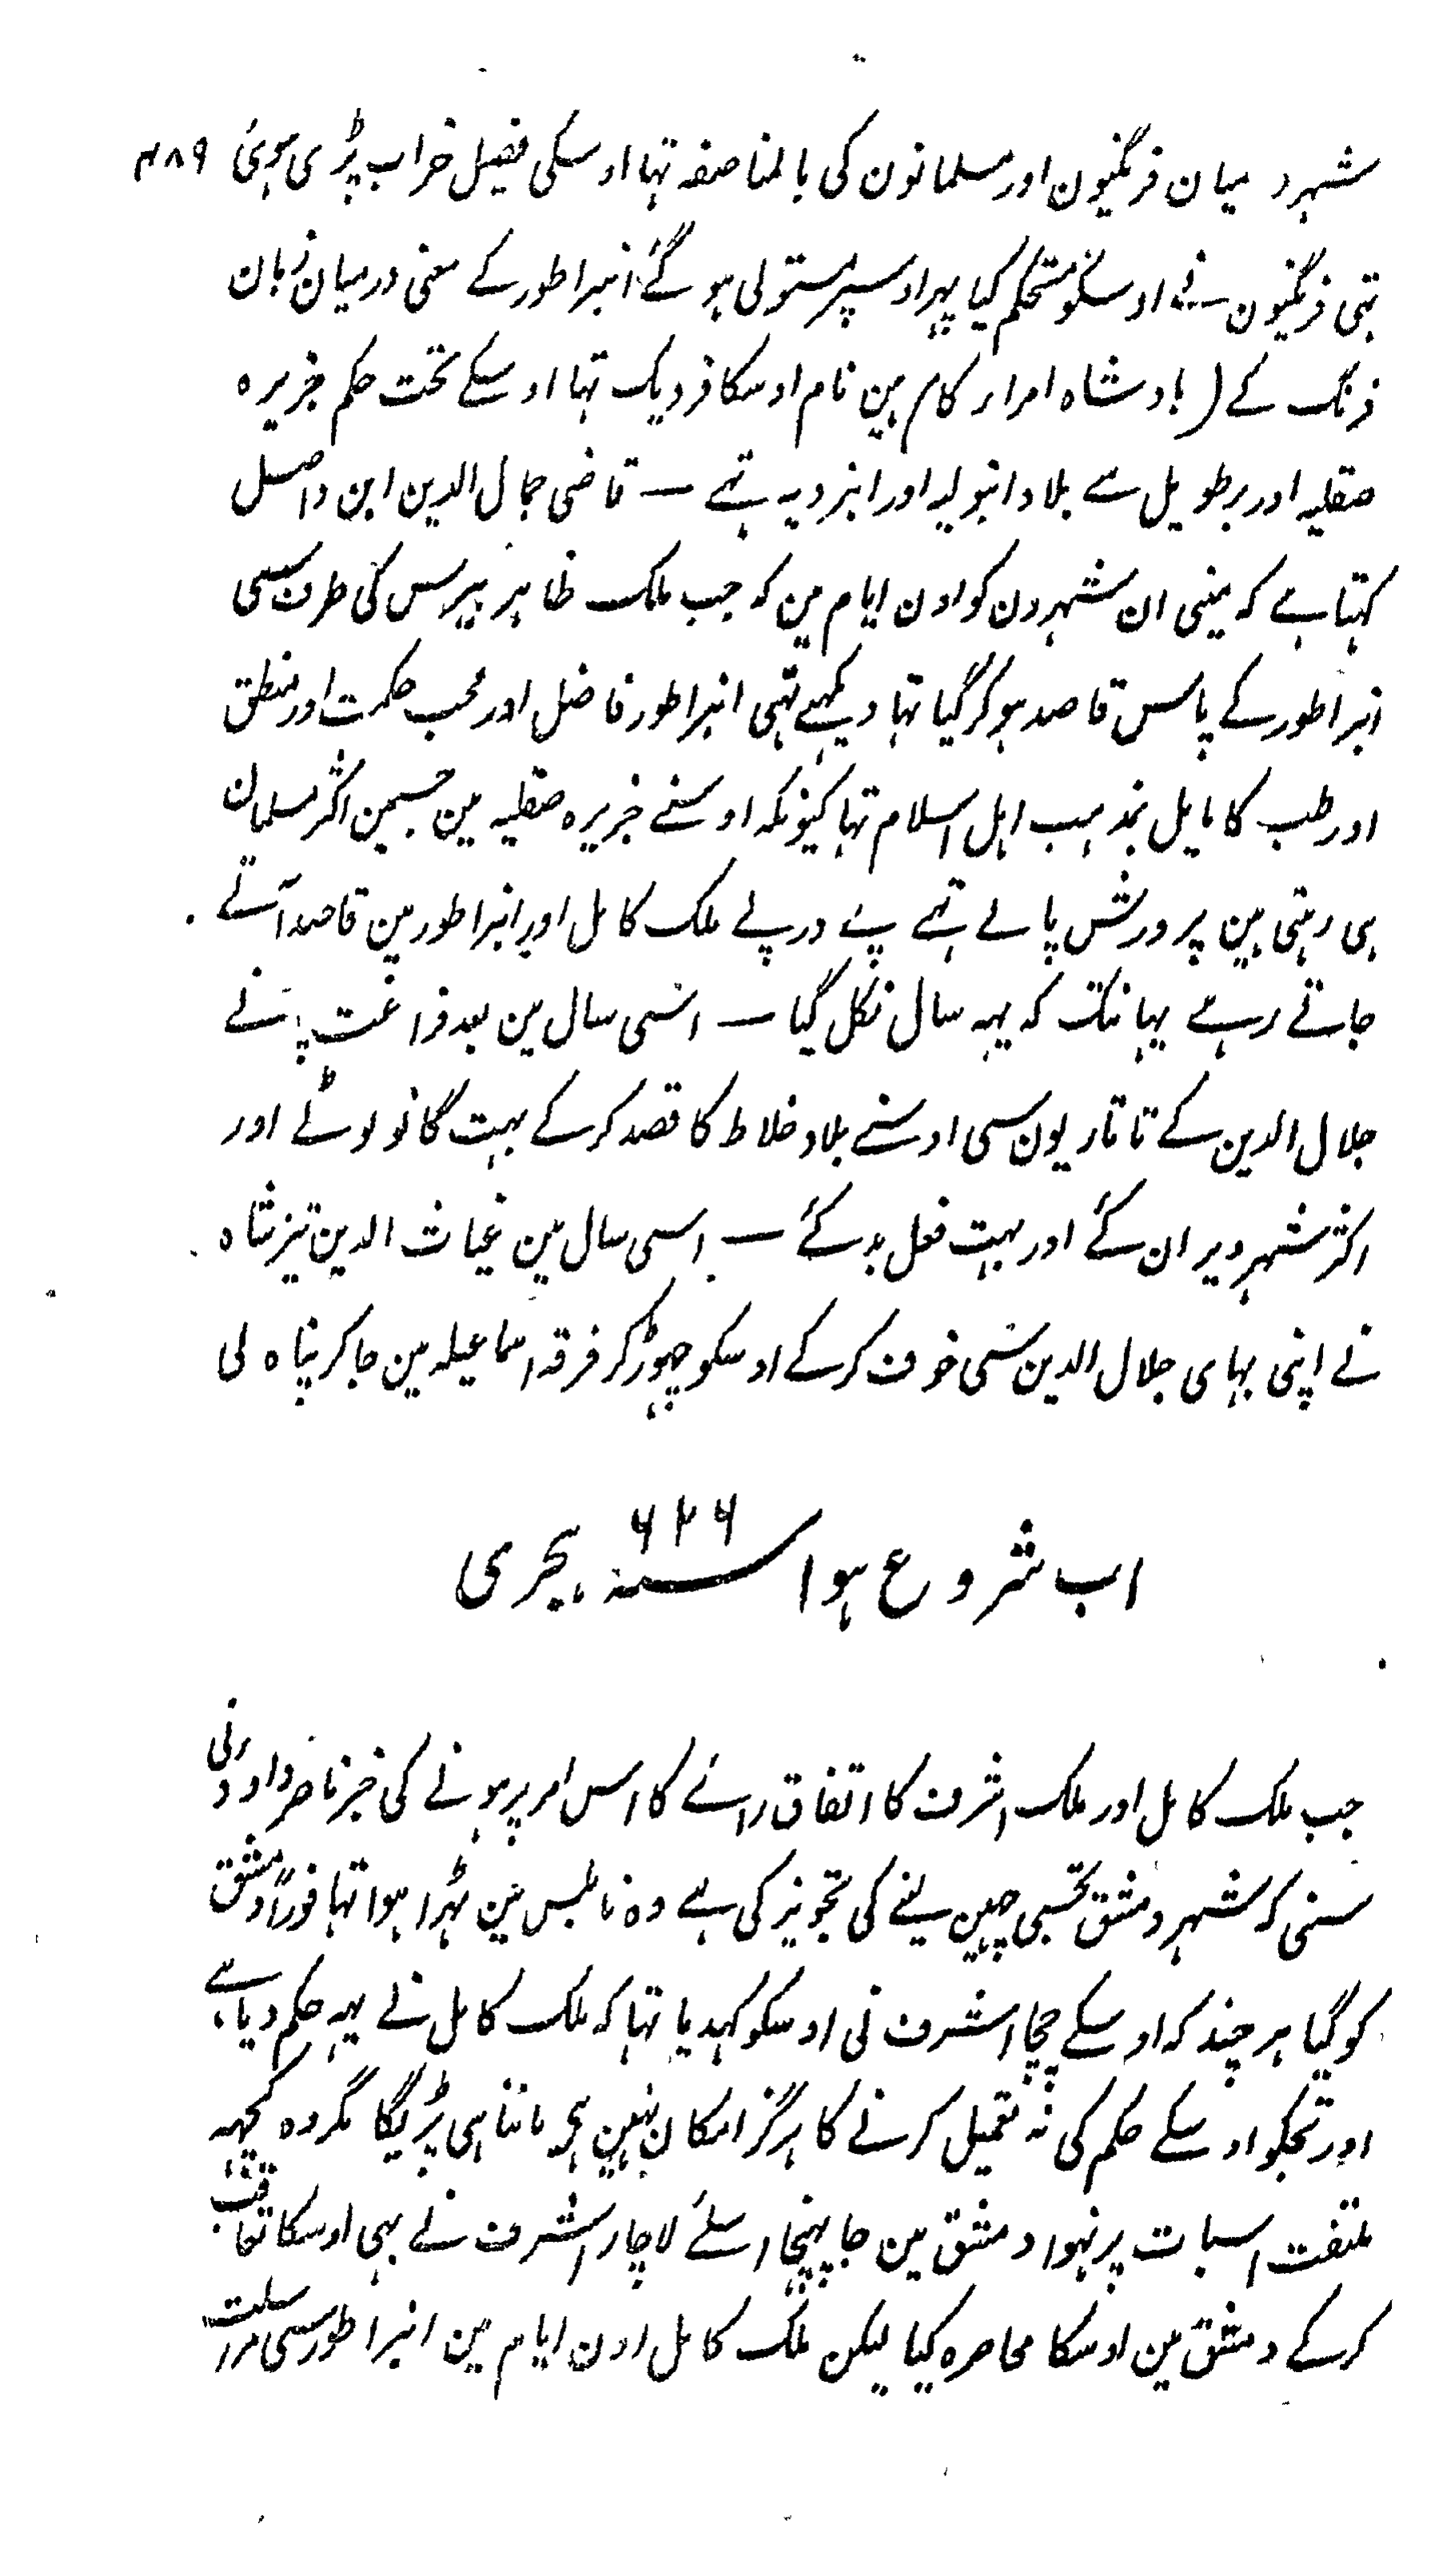 شہر درمیان فرنگیون اور مسلمانون کی بالمناصفہ تہا اوسکی فصیل خراب پڑی ہوئی ۴۸۹
تہی فرنگیون نے اوسکو مستحکم کیا پہر اوسپر مستولی ہو گئے انبراطور کے معنی درمیان زبان
فرنگ کے (بادشاہ امرار کام ہین نام اوسکا فردیک تہا اوسکے تحت حکم جزیرہ
صقلیہ اور برطویل سے بلاد انبولیہ اور انبردیہ تہے — قاضی جمال الدین ابن واصل
کہتا ہے کہ مینی ان شہرون کو اون ایام مین کہ جب ملک ظاہر بیبرس کی طرف سی
انبراطور کے پاس قاصد ہو کر گیا تہا دیکہے تہی انبراطور فاضل اور محب حکمت اور منطق
اور طب کا مایل بمذہب اہل اسلام تہا کیونکہ اوسنے جزیرہ صقلیہ مین جسمین اکثر مسلمان
ہی رہتی ہین پرورش پائے تہے پے درپے ملک کامل اور انبراطور مین قاصد آتے
جاتے رہے یہانتک کہ یہہ سال نکل گیا — اسی سال مین بعد فراغت پانے
جلال الدین کے تاتاریون سی اوسنے بلاد خلاط کا قصد کر کے بہت گانو لوٹے اور
اکثر شہر ویران کئے اور بہت فعل بد کئے — اسی سال مین غیاث الدین تیز شاہ
نے اپنی بہای جلال الدین سی خوف کر کے اوسکو چہوڑ کر فرقہ اسماعیلہ مین جا کر پناہ لی
اب شروع ہوا سنہ ۶۲۶ ہجری
جب ملک کامل اور ملک اشرف کا اتفاق رائے کا اس امر پر ہونے کی خبر ناصر داود نی
سنی کہ شہر دمشق تجسی چہین لینے کی تجویز کی ہے وہ نابلس مین ٹہرا ہوا تہا فوراً دمشق
کو گیا ہر چند کہ اوسکے چچا اشرف نی اوسکو کہدیا تہا کہ ملک کامل نے یہہ حکم دیا ہے
اور تجکو اوسکے حکم کی نہ تعمیل کرنے کا ہرگز امکان نہین ہی ماننا ہی پڑیگا مگر وہ کچہہ
ملتفت اسبات پر نہوا دمشق مین جا پہنچا اسلئے لاچار اشرف نے بہی اوسکا تعاقب
کر کے دمشق مین اوسکا محاصرہ کیا لیکن ملک کامل اون ایام مین انبراطور سی مراسلت